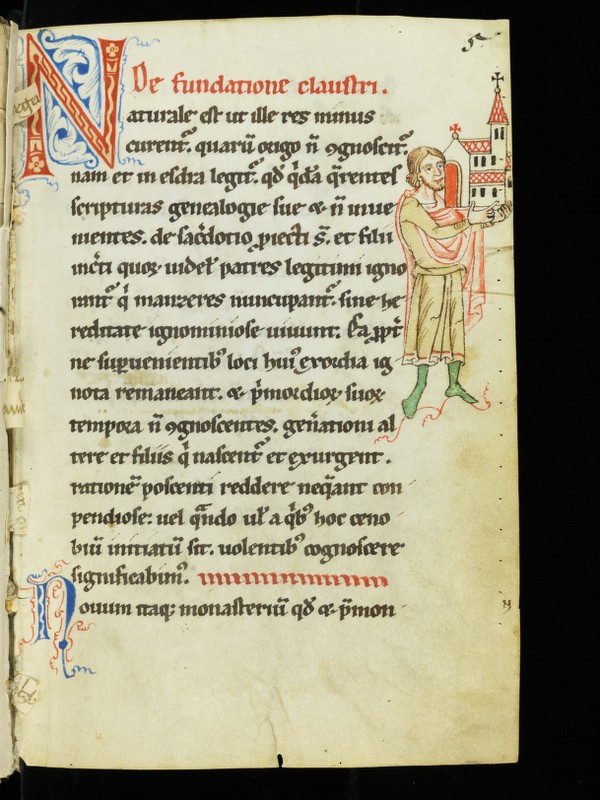 De fundatione claustri.
Naturale est ut ille res minus
curent᷑. quarū origo ñ ꝯgnoscit᷑.
nam et in esdra legit᷑. qd̄ q̄da q̄rentes
scripturas genealogie sue & ñ inue
nientes. de sac̄dotio ꝓiecti s̄. et filii
inc̄ti quoꝝ uidel᷑ patres legitimi igno
rant᷑ q̄ manzeres nuncupant᷑. sine he
reditate ignominiose uiuunt. Ea ꝓpt̄
ne suꝑuenientibꝰ loci huiꝰ exordia ig
nota remaneant. & p̄mordioꝝ suoꝝ
tempora ñ ꝯgnoscentes. gen̄ationi al
tere et filiis q̄ nascent᷑ et exurgent.
rationē poscenti reddere neq̄ant con
pendiose: uel q̄ndo ul᷑ a q̄bꝰ hoc ceno
biū initiatū sit. uolentibꝰ cognoscere
significabimꝰ.
Nouum itaqꝫ monasteriū qd̄ & p̄mon